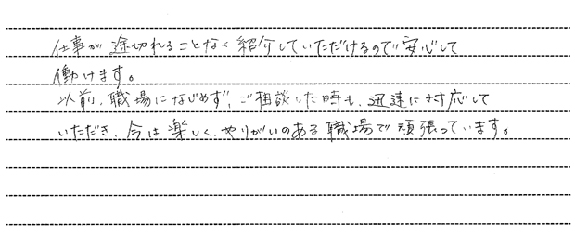 仕事が途切れることなく紹介していただけるので安心して
働けます。
以前、職場になじめず、ご相談した時も、迅速に対応して
いただき、今は楽しく、やりがいのある職場で頑張っています。